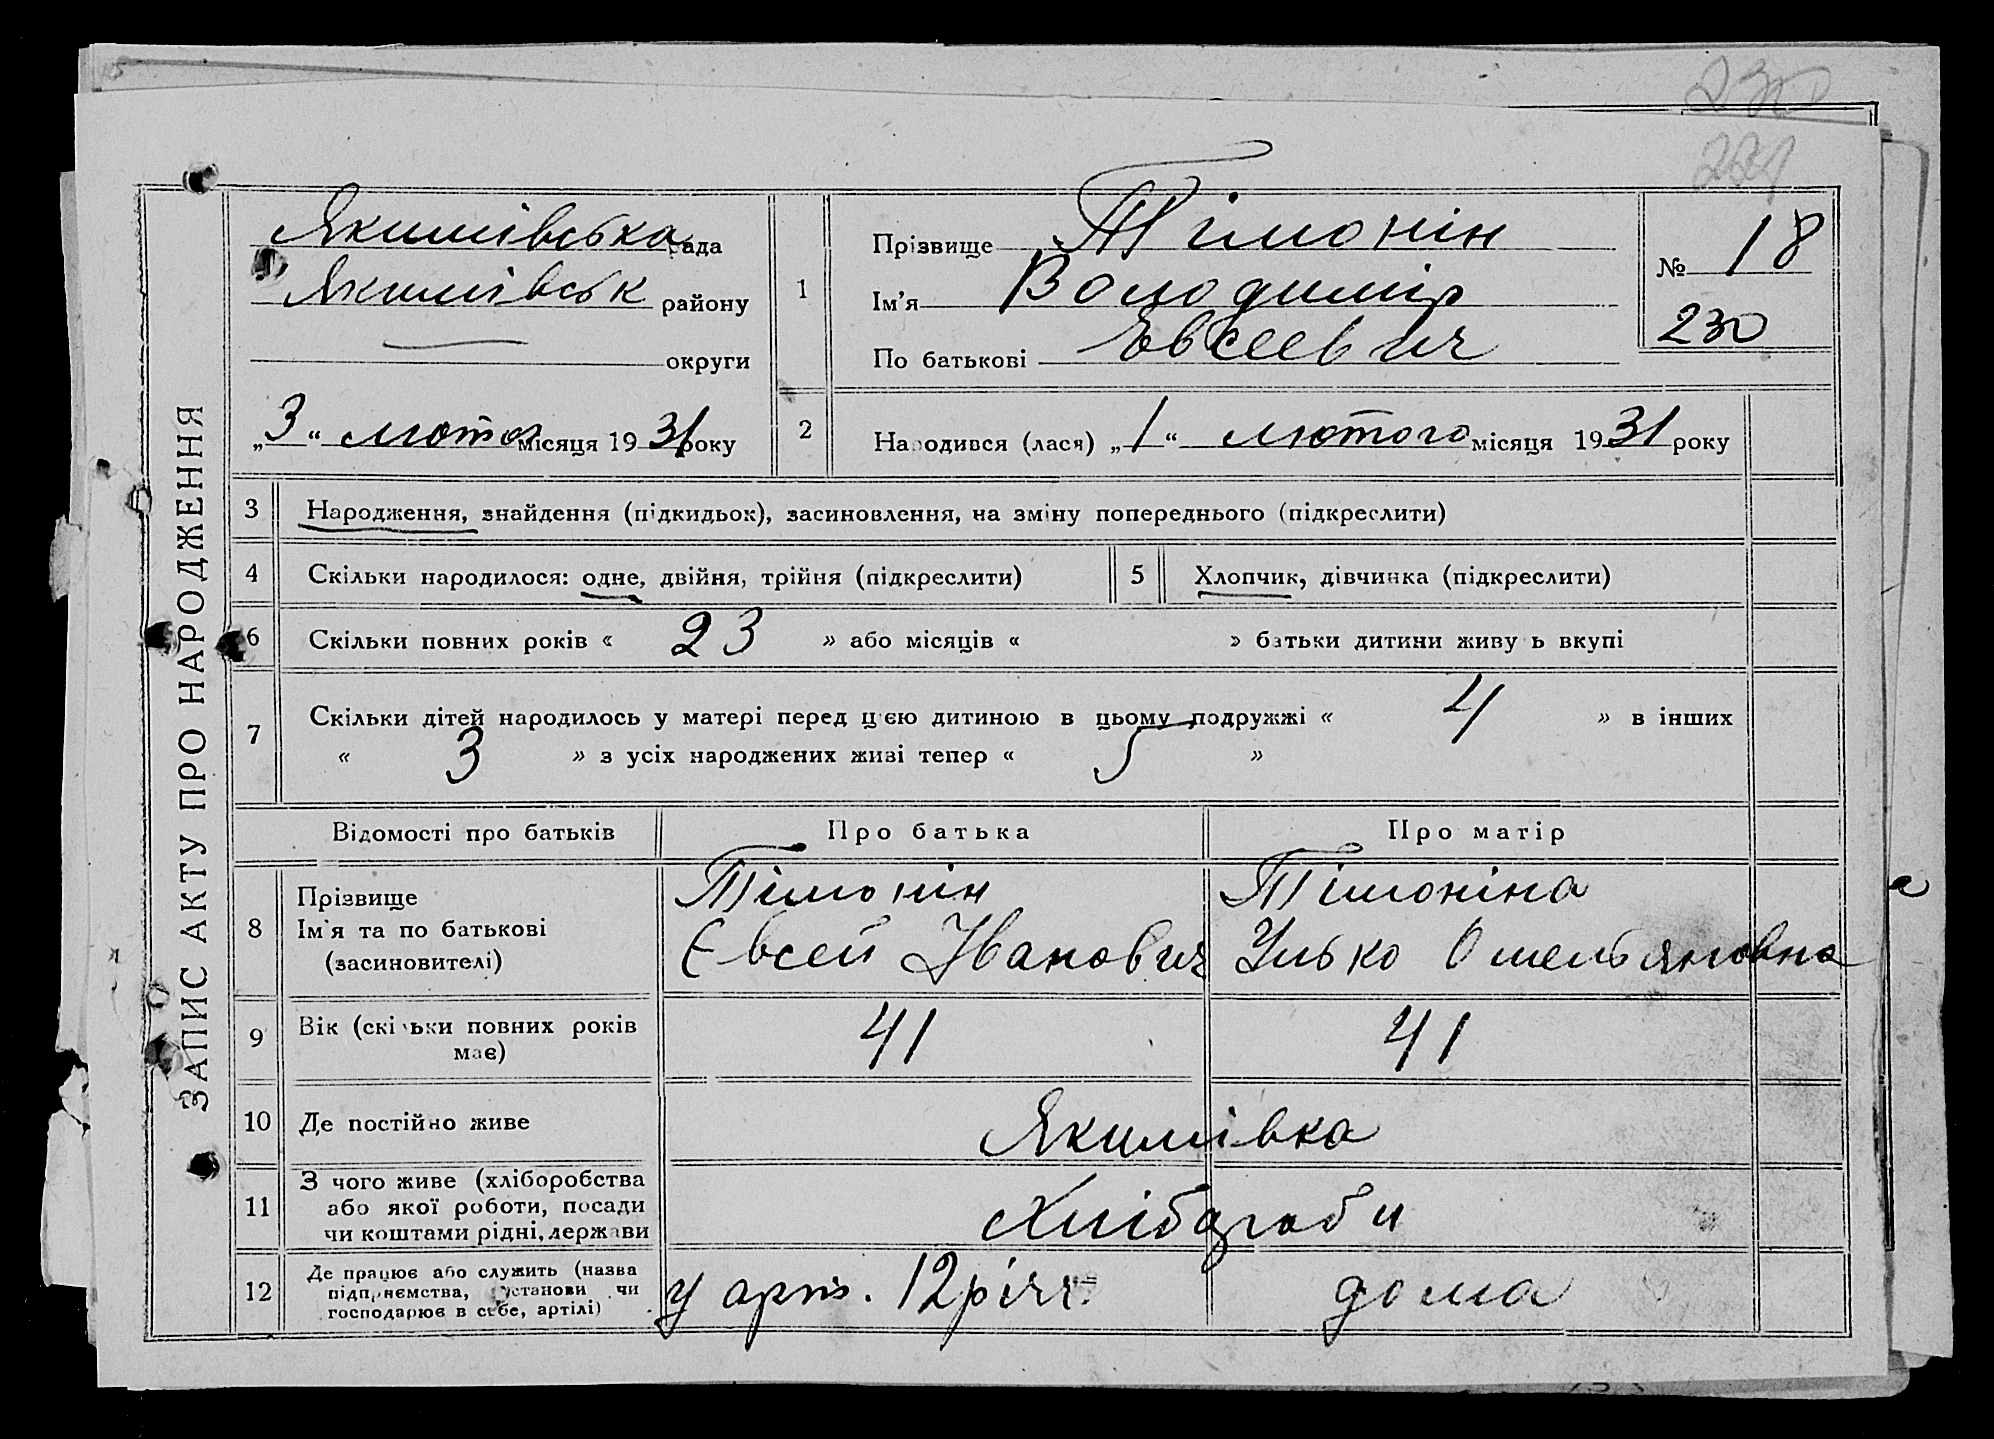 230
221
ЗАПИС АКТУ ПРО НАРОДЖЕННЯ
Якимівська рада
Якимівськ району
округи
„3“ лютого місяця 1931 року
1
Прізвище Тімонін
Ім’я Володимір
По батькові Евсеевич
№ 18
230
2
Народився (лася) „1“ лютого місяця 1931 року
3 Народження, знайдення (підкидьок), засиновлення, на зміну попереднього (підкреслити)
4 Скільки народилося: одне, двійня, трійня (підкреслити)
5 Хлопчик, дівчинка (підкреслити)
6 Скільки повних років « 23 » або місяців « » батьки дитини живуть вкупі
7 Скільки дітей народилось у матері перед цією дитиною в цьому подружжі « 4 » в інших
« 3 » з усіх народжених живі тепер « 5 »
Відомості про батьків
Про батька
Про матір
8
Прізвище
Ім’я та по батькові
(засиновителі)
Тімонін
Євсей Іванович
Тімоніна
Улько Омельяновна
9
Вік (скільки повних років
має)
41
41
10 Де постійно живе
Якимівка
11
З чого живе (хліборобства
або якої роботи, посади
чи коштами рідні, держави
Хлібороби
12
Де працює або служить (назва
підприємства, установи чи
господарює в себе, артілі)
у арт. 12 річч
дома